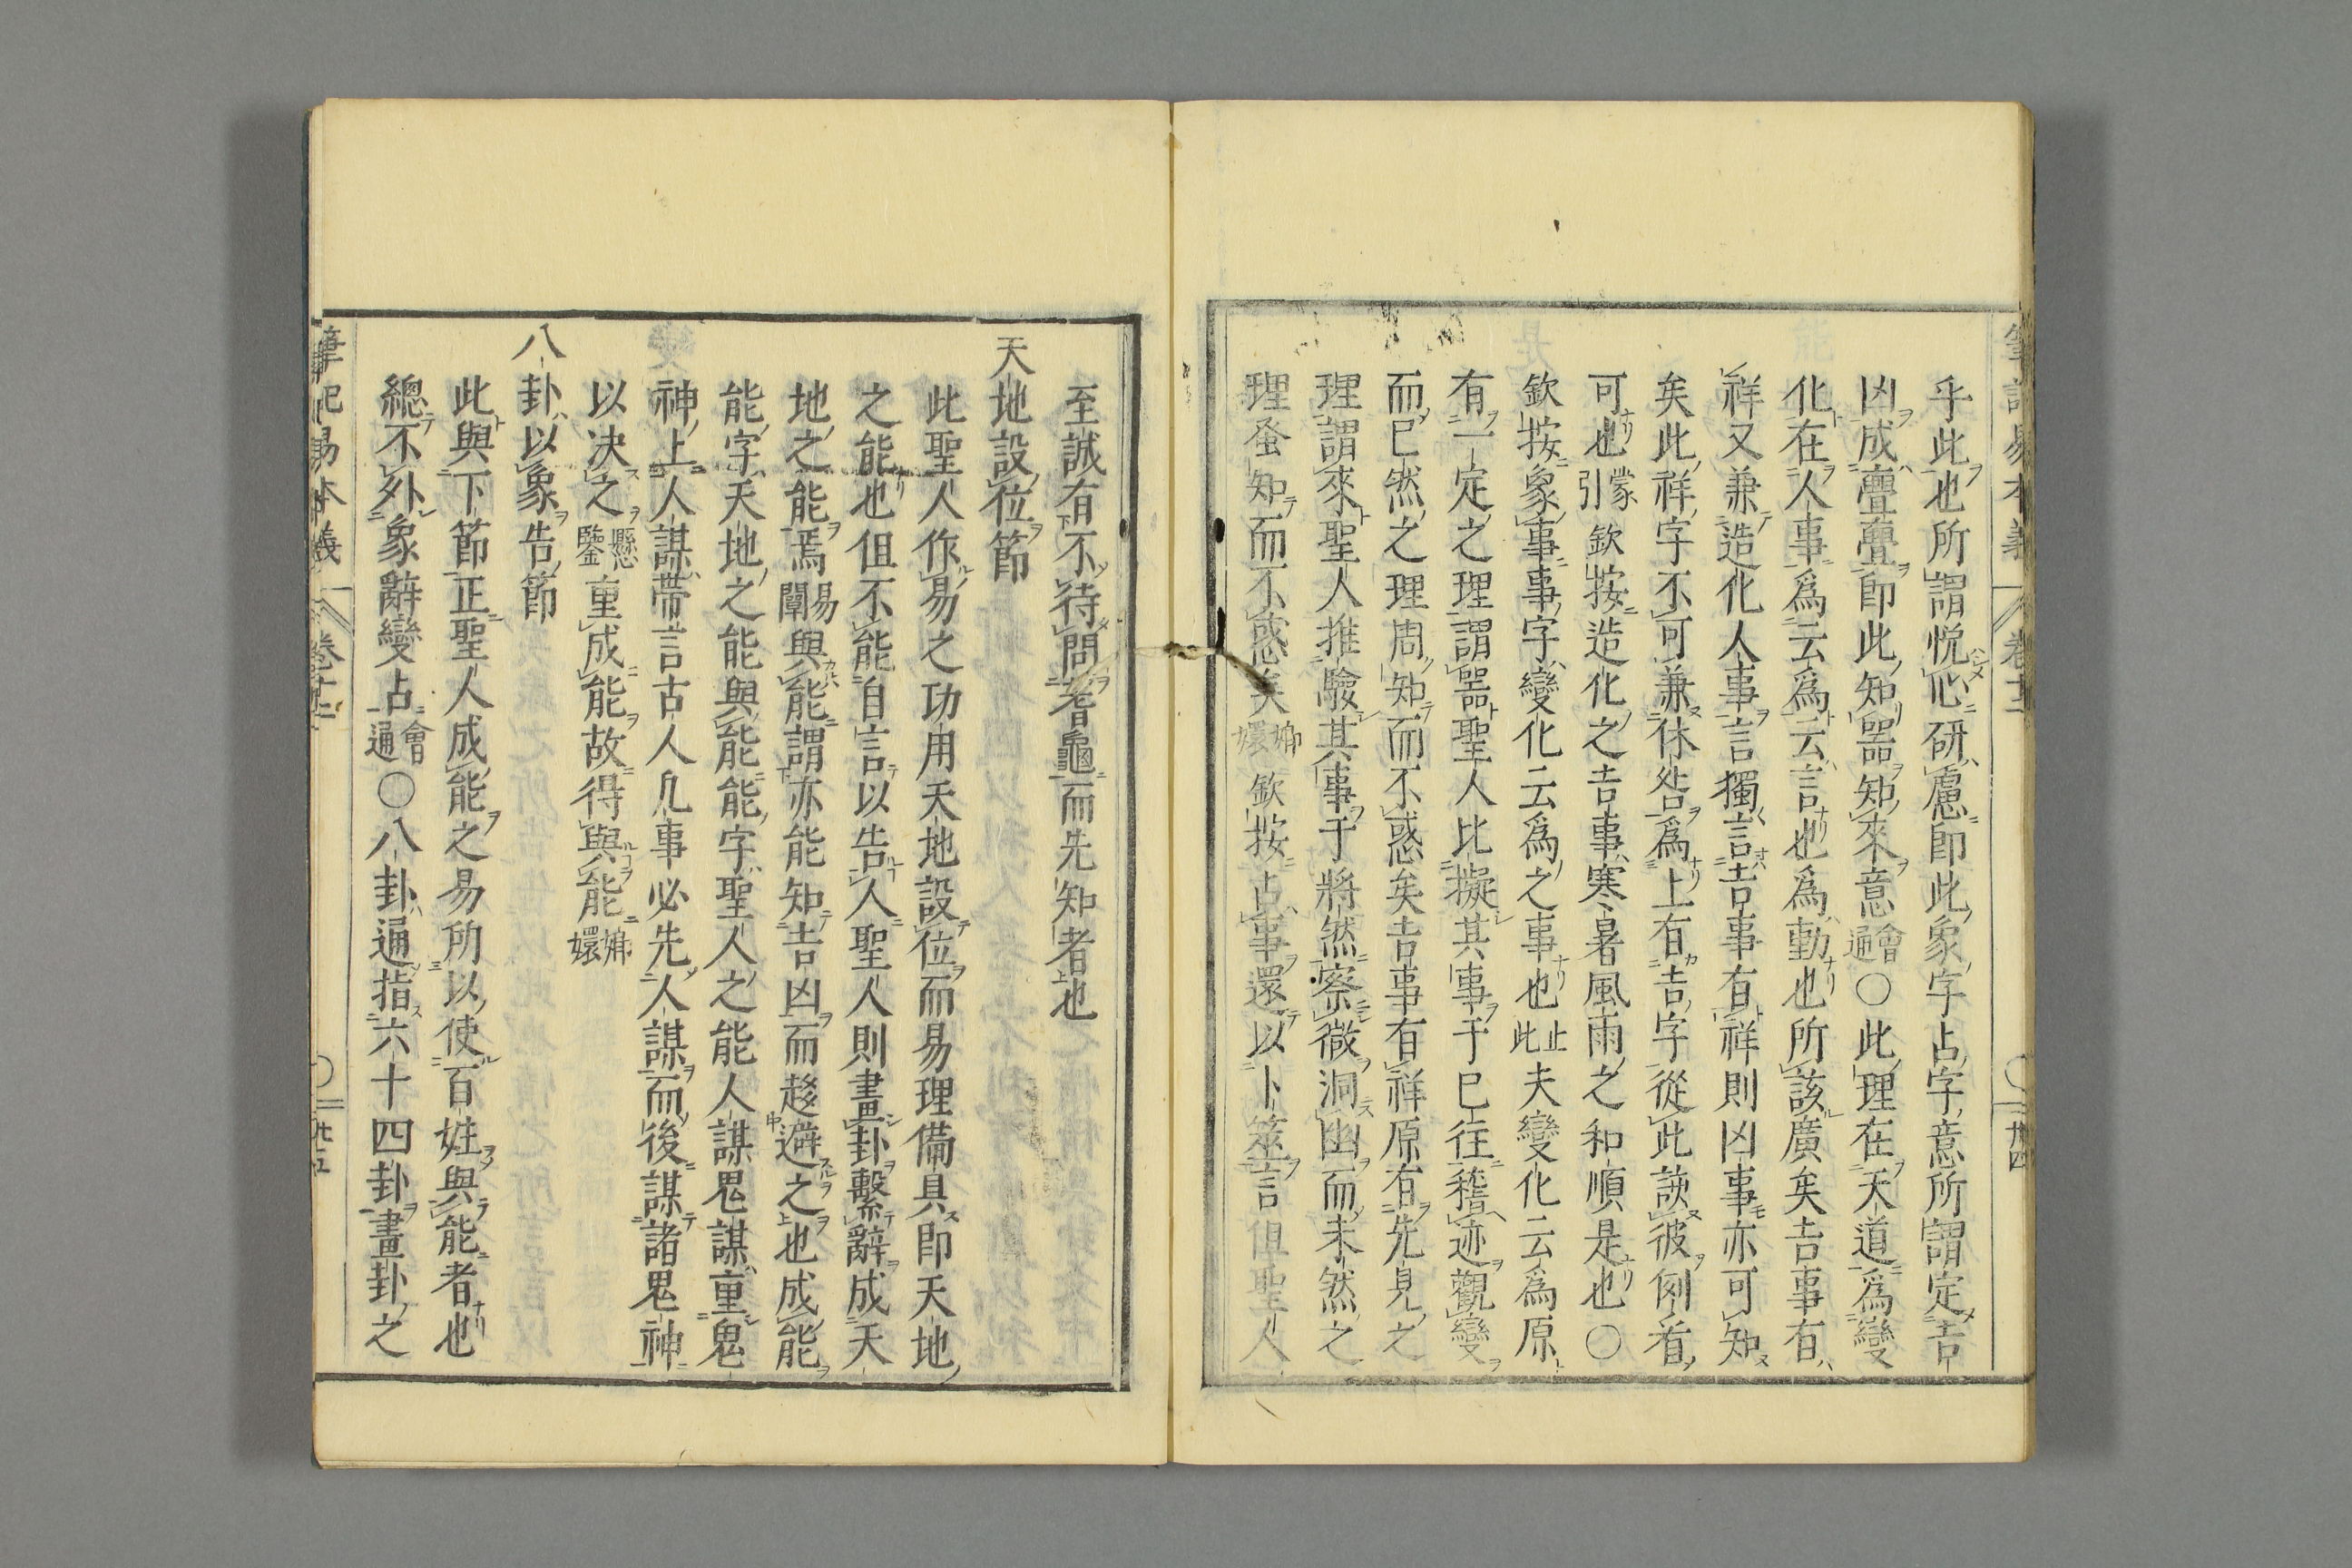 乎此也所謂悦心研慮即此象字占字意所謂定吉
凶成亹亹即此知器知來意會通〇此理在天道爲變
化在人事爲云爲云言也爲動也所該廣矣吉事有
祥又兼造化人事言獨言吉事有祥則凶事亦可知
矣此祥字不可兼休咎爲上有吉字從此詼彼例看
可也蒙引欽按造化之吉事寒暑風雨之和順是也〇
欽按象事事字變化云爲之事也止此夫變化云爲原
有一定之理謂器聖人比擬其事于已往稽迹觀變
而已然之理周知而不惑矣吉事有祥原有先見之
理謂來聖人推驗其事于將然察微洞幽而未然之
理蚤知而不惑矣嫏嬛欽按占事還以卜筮言但聖人
卷十二
廿四
至誠有不待問蓍龜而先知者也
天地設位節
此聖人作易之功用天地設位而易理備具即天地
之能也但不能自言以告人聖人則畫卦繫辭成天
地之能焉易闡與能謂亦能知吉凶而趍避之也成能
能字天地之能與能能字聖人之能人謀鬼謀重鬼
神上人謀帶言古人凡事必先人謀而後謀諸鬼神
以决之懸鑒重成能故得與能嫏嬛
八卦以象告節
此與下節正聖人成能之易所以使百姓與能者也
總不外象辭變占會通〇八卦通指六十四卦畫卦之
筆記易本義
卷十二
廿五